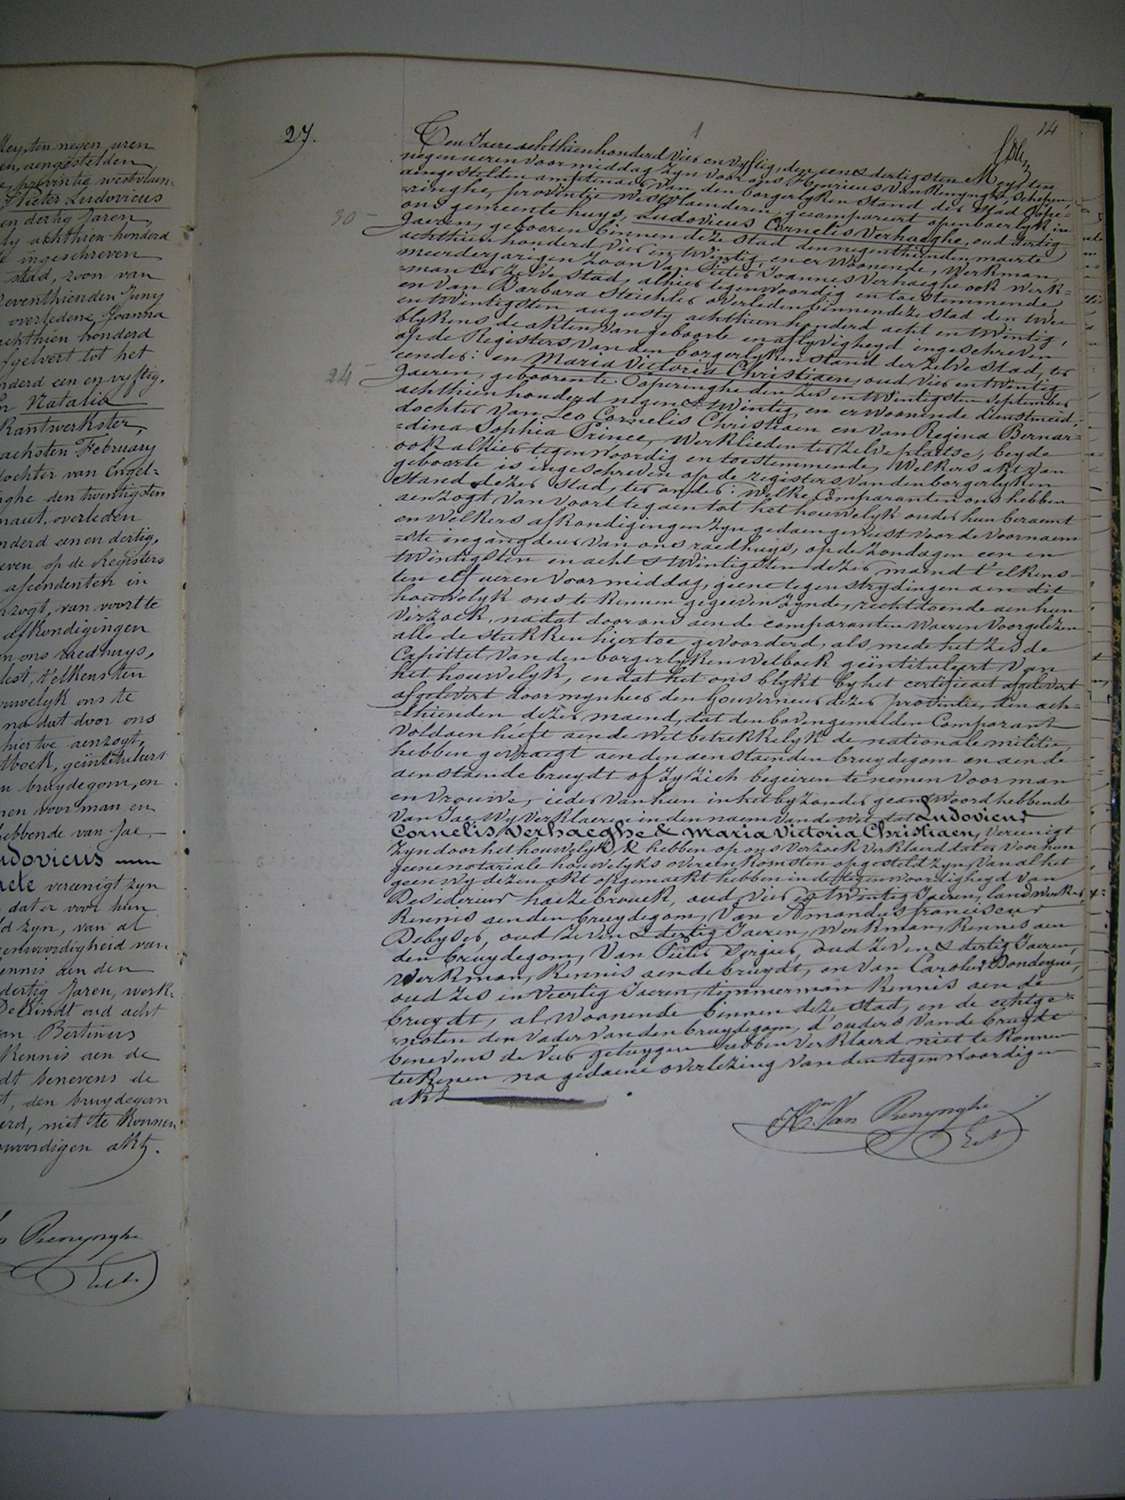 Mey, ten negen uren
aengestelden
provintie westvlaen-
Pieter Ludovicus
en dertig Jaren,
achthien honderd
ingeschreven
stad, zoon van
zeventhienden Juny
overledene, Joanna
achthien honderd
afgelvert tot het
honderd een en vyftig,
Natalia
Kantwerkster,
achsten February
dochter van Engel-
inghe den twintigsten
overleden
honderd een en dertig,
op de Registers
ascendenten in
van voort te
afkondigingen
ons raedhuys,
t'elkens ten
houwelyk ons te
na dat door ons
hiertoe aenzogt,
Wetboek, geïntituleert
bruydegom, en
nemen voor man en
hebbende van Jae,
Ludovicus
vereenigt zyn
dat er voor hun
zyn, van al
tegenwoordigheid van
kennis aen den
dertig Jaren, werk-
oud acht
van Bertiners
Kennis aen de
benevens de
den bruydegom
niet te konnen
tegenwoordigen akt.
Van Renynghe
27.
14
Ten Jaere achthienhonderd vier en vyftig, den eenendertigsten Mey, ten
negen ueren voormiddag zyn voor ons Henricus Van Renynghe, Schepen,
aengestelden amptenaer van den borgerlyken stand der stad Pope-
=ringhe, provintie Westvlaenderen, gecompareert openbaerlyk in
30-
ons gemeentehuys, Ludovicus Cornelis Verhaeghe, oud dertig
Jaeren, geboren binnen deze stad den negenthienden maerte
achthienhonderd vier en twintig, en er woonende, Werkman,
meerderjarigen zoon van Pieter Joannes Verhaeghe ook werk-
=man ter zelve stad, alhier tegenwoordig en toestemmende,
en van Barbara Stichter overleden binnen deze stad den twee
en twintigsten augusty achthienhonderd acht en twintig,
blykens de akten van geboorte en aflyvigheyd ingeschreven
op de Registers van den borgerlyken stand der zelve stad, ter
24-
eender: en Maria Victoria Christiaen, oud vier en twintig
Jaeren, geboren te Poperinghe den zes en twintigsten September
achthienhonderd negen & twintig, en er woonende dienstmeid,
dochter van Leo Cornelis Christiaen en van Regina Bernar-
=dina Sophia Prince, werklieden ter zelve plaetse, beyde
ook alhier tegenwoordig en toestemmende, welkers akt van
geboorte is ingeschreven op de registers van den borgerlyken
Stand dezer Stad, ter ander: Welke Comparanten ons hebben
aenzogt van voort te gaen tot het houwelyk onder hun beraemt
en welkers afkondigingen zyn gedaen geweest voor de voornaem-
=ste ingangdeur van ons raedhuys, op de zondagen een en
twintigsten en acht & twintigsten dezer maend t'elkens
ten elf ueren voormiddag, geene tegenstrydingen aen dit
houwelyk ons te kennen gegeven zynde, rechtdoende aen hun
verzoek, na dat door ons aen de comparanten waeren voorgelezen
alle de stukken hiertoe gevoorderd, als mede het zesde
Capittel van den borgerlyken Wetboek geïntituleert van
het houwelyk, en dat het ons blykt by het certificaet afgelevert
afgelevert door mynheer den Gouverneur dezer Provintie, den ach-
=thienden dezer maend, dat den bovengemelden Comparant
voldaen heeft aen de Wet betrekkelyk de nationale militie,
hebben gevraegt aen den aenstaenden bruydegom en aen de
aenstaende bruydt of zy zich begeiren te nemen voor man
en vrouwe, ieder van hun in het byzonder geantwoord hebbende
van Jae, Wy verklaeren in den naem van de wet dat Ludovicus
Cornelis Verhaeghe & Maria Victoria Christiaen, vereenigt
zyn door het houwelyk, & hebben op ons verzoek verklaerd dat er voor hun
geene notariale houwelyks overeenkomsten opgesteld zyn, van al het
geen wy dezen akt opgemaekt hebben in de tegenwoordigheyd van
Desiderius haezebrouck, oud vier en twintig Jaeren, landwerker,
Kennis aen den bruydegom, Van Amandus franciscus
Debyser, oud zeven & dertig Jaeren, Werkman, Kennis aen
den bruydegom, Van Pieter Sergier, oud zeven & dertig Jaeren,
Werkman, Kennis aen de bruydt, en van Carolus Dondeyne,
oud zes en veertig Jaeren, timmerman Kennis aen de
bruydt, al woonende binnen deze stad, en de echtge=
=noten den vader van den bruydegom, d'ouders van de bruydt
benevens de vier getuygen hebben verklaerd niet te konnen
teekenen na gedaene overlezing van den tegenwoordigen
akt
Hen. Van Renynghe